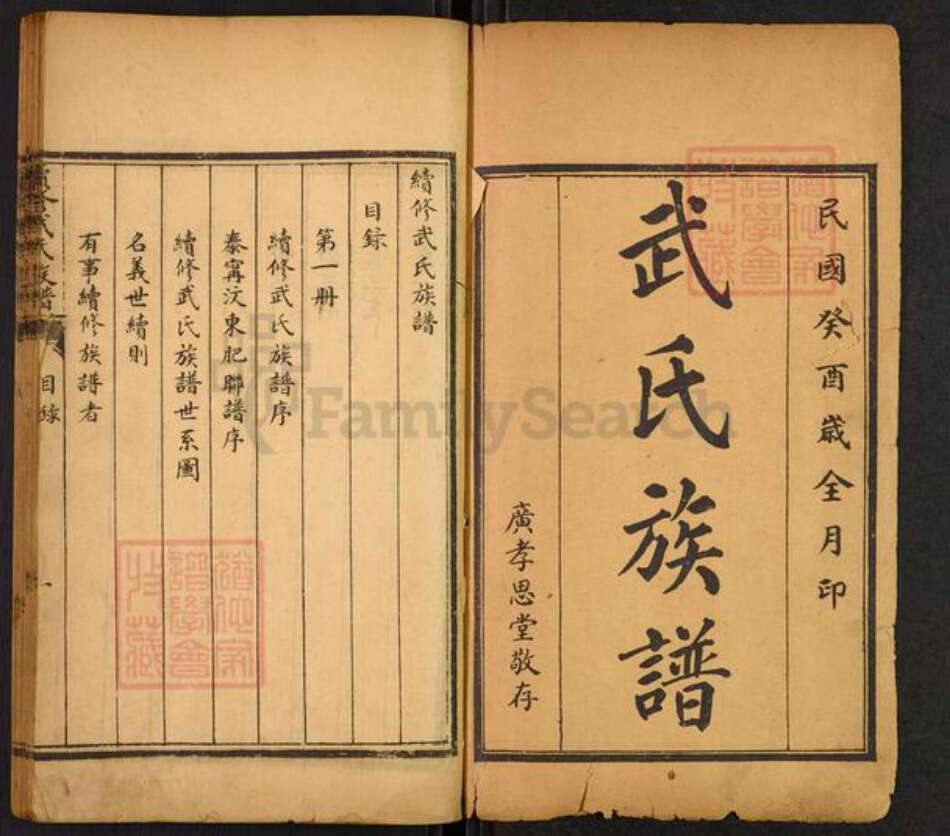 民國癸酉歲全月印
武氏族譜
廣孝思堂敬存
續修武氏族譜
目録
第一册
續修武氏族譜序
泰甯汶東肥聯譜序
續修武氏族譜世系圖
名義世續則
有事續修族譜者
續修武氏族譜
目録
一
FamilySearch